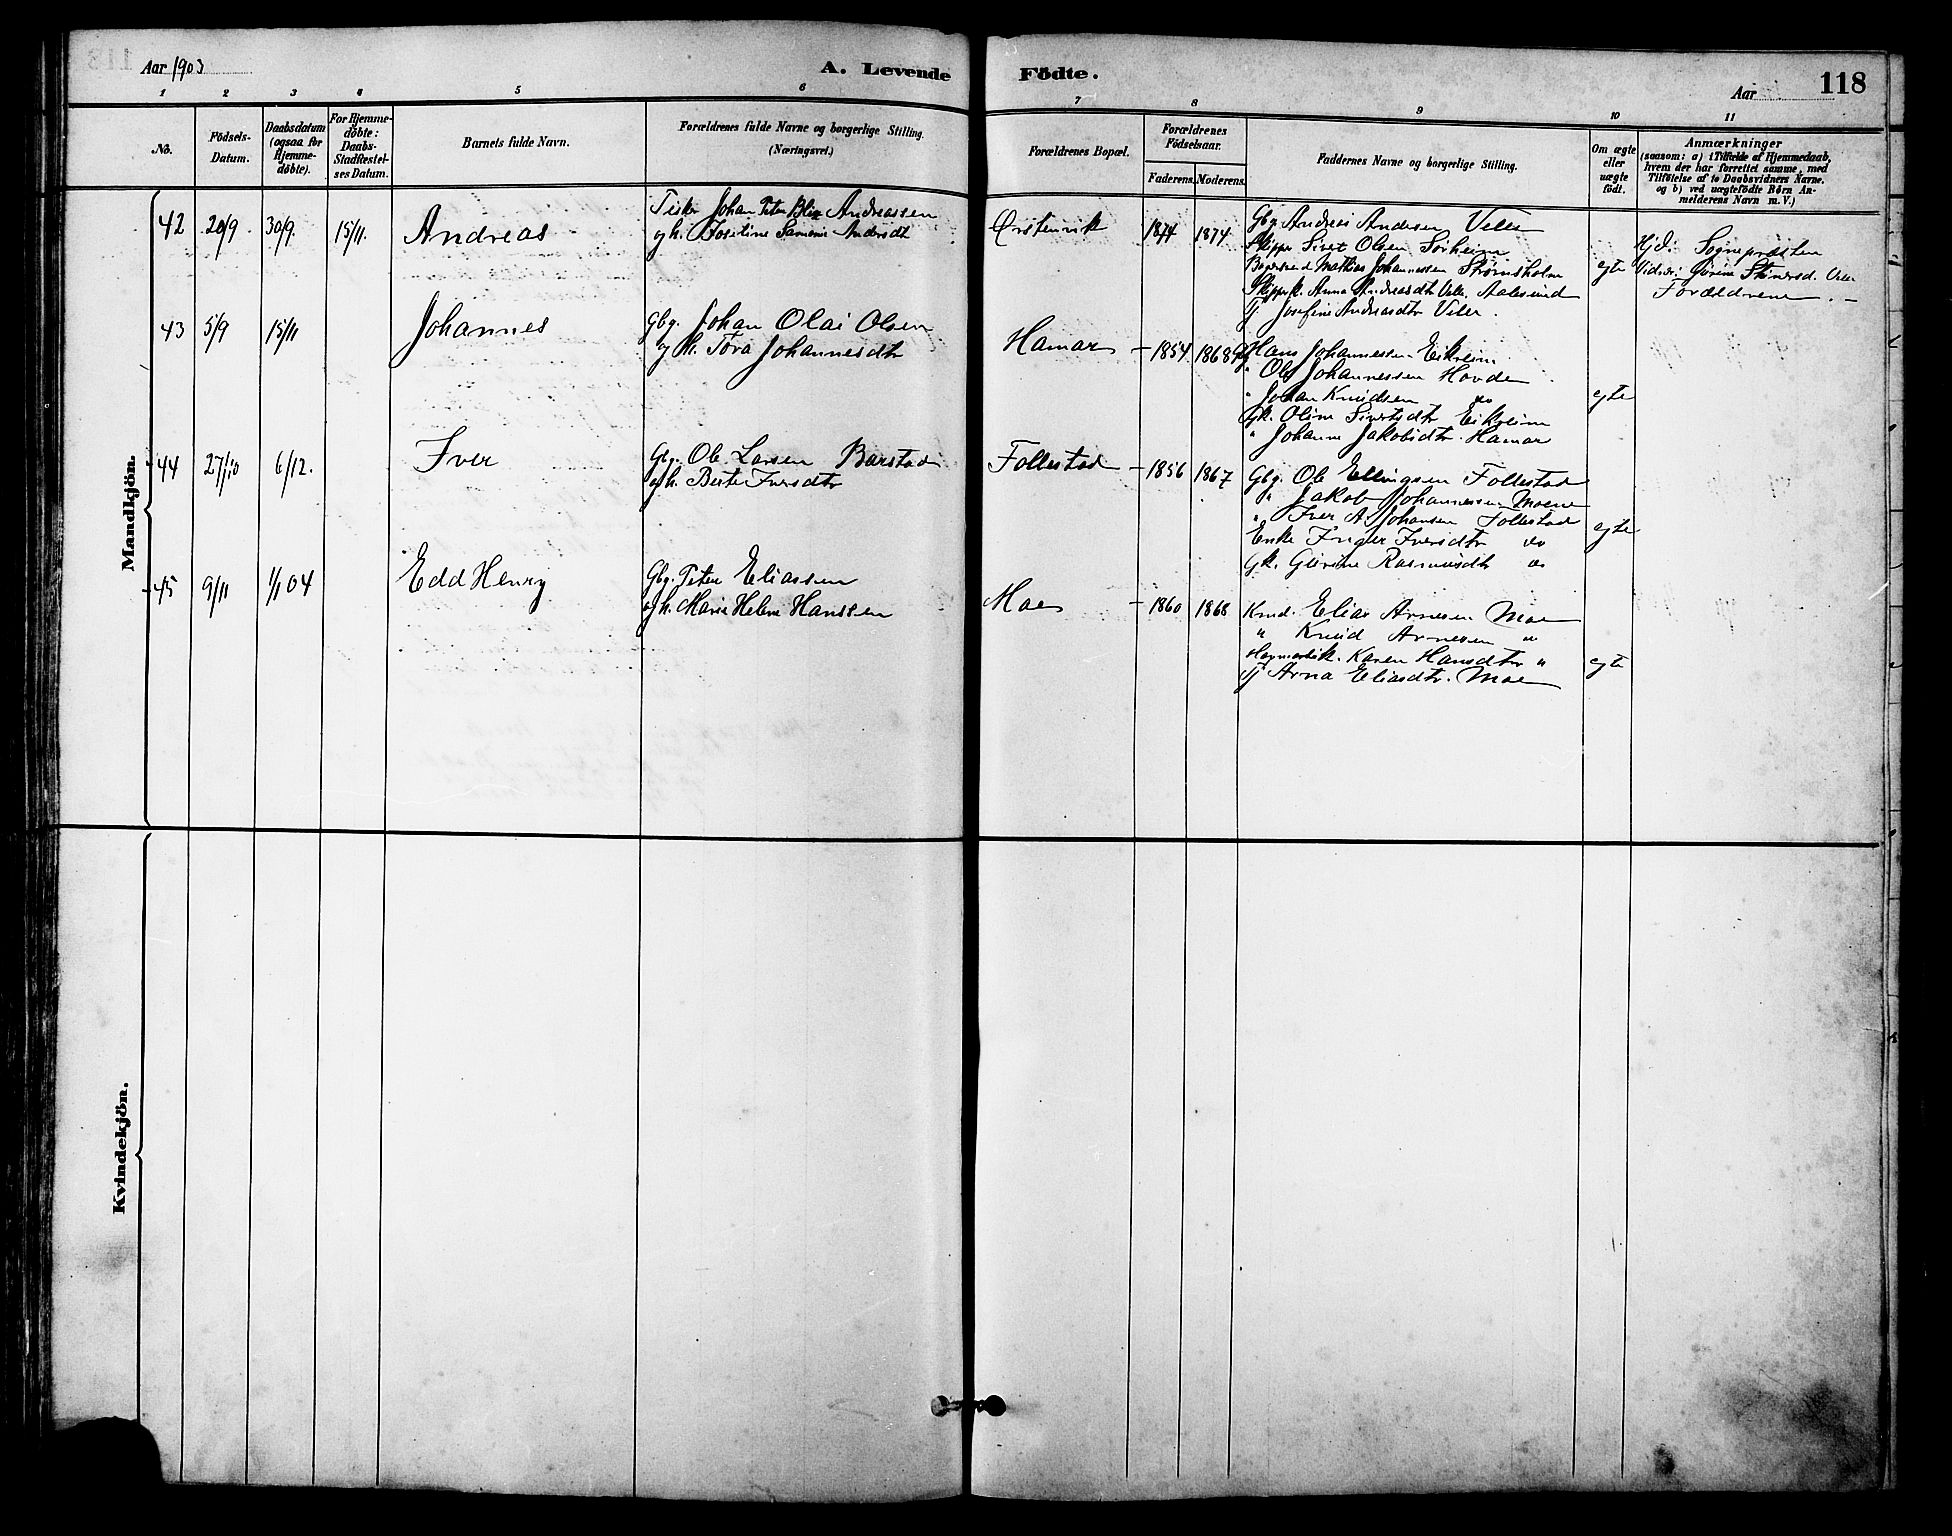 Aar 1903
A. Levende Födte.
Aar
118
1 2 3 4 5 6 7 8 9 10 11
No.
Födsels-
Datum.
Daabsdatum
(ogsaa for
Hjemme-
døbte).
For Hjemme-
døbte:
Daabs-
Stadfæstel-
ses Datum.
Barnets fulde Navn.
Forældrenes fulde Navne og borgerlige Stilling.
(Næringsvei.)
Forældrenes Bopæl.
Forældrenes
Fødselsaar.
Faderens. Moderens.
Faddernes Navne og borgerlige Stilling.
Om ægte
eller
uægte
født.
Anmærkninger
(saasom: a) i Tilfælde af Hjemmedaab,
hvem der har forrettet samme, med
Tilføielse af to Daabsvidners Navne.
og b) ved uægtefødte Børn An-
melderens Navn m. V.)
Mandkjön.
42 20/9 30/9 15/11 Andreas
Fisker Johan Peter Blix Andreassen
og h. Josefine Andersdt
1874 1874
Gbg Andreas Andersen Veler
Skipper Sivert Olsen Sørheim
Mathias Johannessen Strømsholm
Skipperk. Anna Andreasdtr Aalesund
Tj. Josefine Andreasdtr Veler.
egte
Hjd. Sognepræsten
Vidner:
Forældrene. –
43 5/9 15/11 Johannes
Gbg. Johan Olai Olsen
og h. Tora Johannesdtr
Hamar – 1854 1868
Hans Johannessen Eikreim
" Ole Johannessen Hovde
" Johan Knudsen do
Gk. Oline Sivertsdtr Eikreim
" Johanne Jakobsdtr. Hamar
egte
44 27/10 6/12. Iver
Gbg. Ole Larsen Barstad
og h. Berte Iversdtr
Follestad – 1856 1867
Gbg. Ole Ellingsen Follestad
" Jakob Johannessen Moene
" Iver A. Johansen Follestad
Enke Inger Iversdtr do
Gk. Gurine Rasmusdt do
egte
45 9/11 1/1 04 Edd Henry
Gbg. Peter Eliassen
og h. Marie Helene Hanssen
Moe – 1860 1868
Kmd. Elias Arnesen Moe
" Knud Arnesen "
Karen Hansdtr "
Tj Arna Eliasdtr. Moe
egte
Kvindekjön.